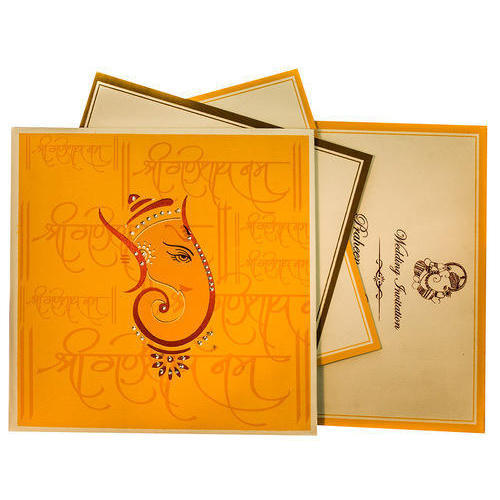 श्री गणेशाय नमः
श्री गणेशाय नमः
श्री गणेशाय नमः
श्री गणेशाय नमः
श्री गणेशाय नमः
Praheen
Wedding Invitation